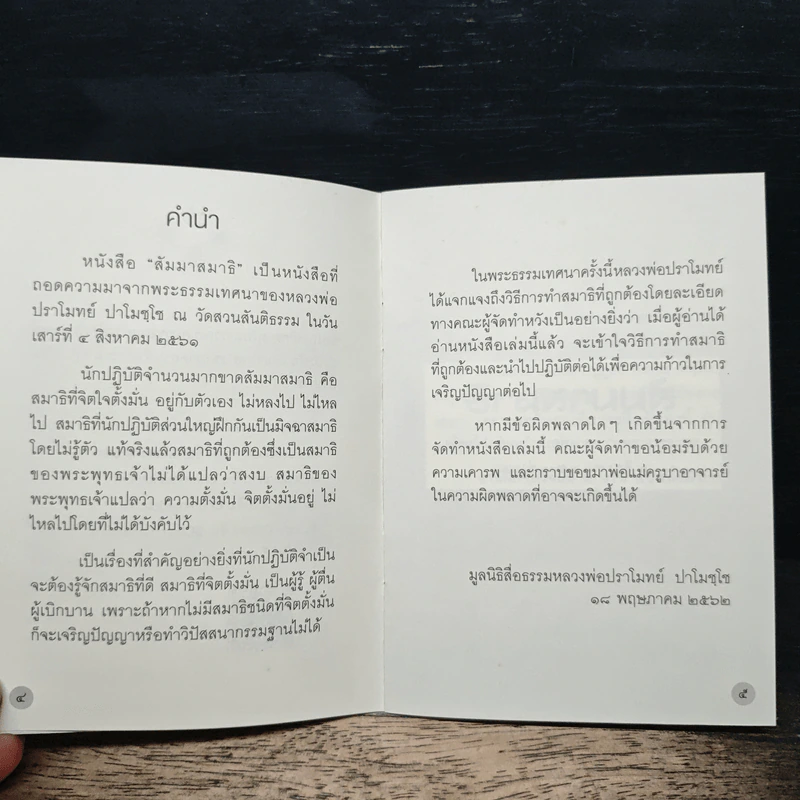 คำนำ
หนังสือ “สัมมาสมาธิ” เป็นหนังสือที่
ถอดความมาจากพระธรรมเทศนาของหลวงพ่อ
ปราโมทย์ ปาโมชฺโช ณ วัดสวนสันติธรรม ในวัน
เสาร์ที่ ๔ สิงหาคม ๒๕๖๑
นักปฏิบัติจำนวนมากขาดสัมมาสมาธิ คือ
สมาธิที่จิตใจตั้งมั่น อยู่กับตัวเอง ไม่หลงไป ไม่ไหล
ไป สมาธิที่นักปฏิบัติส่วนใหญ่ฝึกกันเป็นมิจฉาสมาธิ
โดยไม่รู้ตัว แท้จริงแล้วสมาธิที่ถูกต้องซึ่งเป็นสมาธิ
ของพระพุทธเจ้าไม่ได้แปลว่าสงบ สมาธิของ
พระพุทธเจ้าแปลว่า ความตั้งมั่น จิตตั้งมั่นอยู่ ไม่
ไหลไปโดยที่ไม่ได้บังคับไว้
เป็นเรื่องที่สำคัญอย่างยิ่งที่นักปฏิบัติจำเป็น
จะต้องรู้จักสมาธิที่ดี สมาธิที่จิตตั้งมั่น เป็นผู้รู้ ผู้ตื่น
ผู้เบิกบาน เพราะถ้าหากไม่มีสมาธิชนิดที่จิตตั้งมั่น
ก็จะเจริญปัญญาหรือทำวิปัสสนากรรมฐานไม่ได้
๔
ในพระธรรมเทศนาครั้งนี้หลวงพ่อปราโมทย์
ได้แจกแจงถึงวิธีการทำสมาธิที่ถูกต้องโดยละเอียด
ทางคณะผู้จัดทำหวังเป็นอย่างยิ่งว่า เมื่อผู้อ่านได้
อ่านหนังสือเล่มนี้แล้ว จะเข้าใจวิธีการทำสมาธิ
ที่ถูกต้องและนำไปปฏิบัติต่อได้เพื่อความก้าวในการ
เจริญปัญญาต่อไป
หากมีข้อผิดพลาดใดๆ เกิดขึ้นจากการ
จัดทำหนังสือเล่มนี้ คณะผู้จัดทำขอน้อมรับด้วย
ความเคารพ และกราบขอขมาพ่อแม่ครูบาอาจารย์
ในความผิดพลาดที่อาจจะเกิดขึ้นได้
มูลนิธิสื่อธรรมหลวงพ่อปราโมทย์ ปาโมชฺโช
๑๘ พฤษภาคม ๒๕๖๒
๕